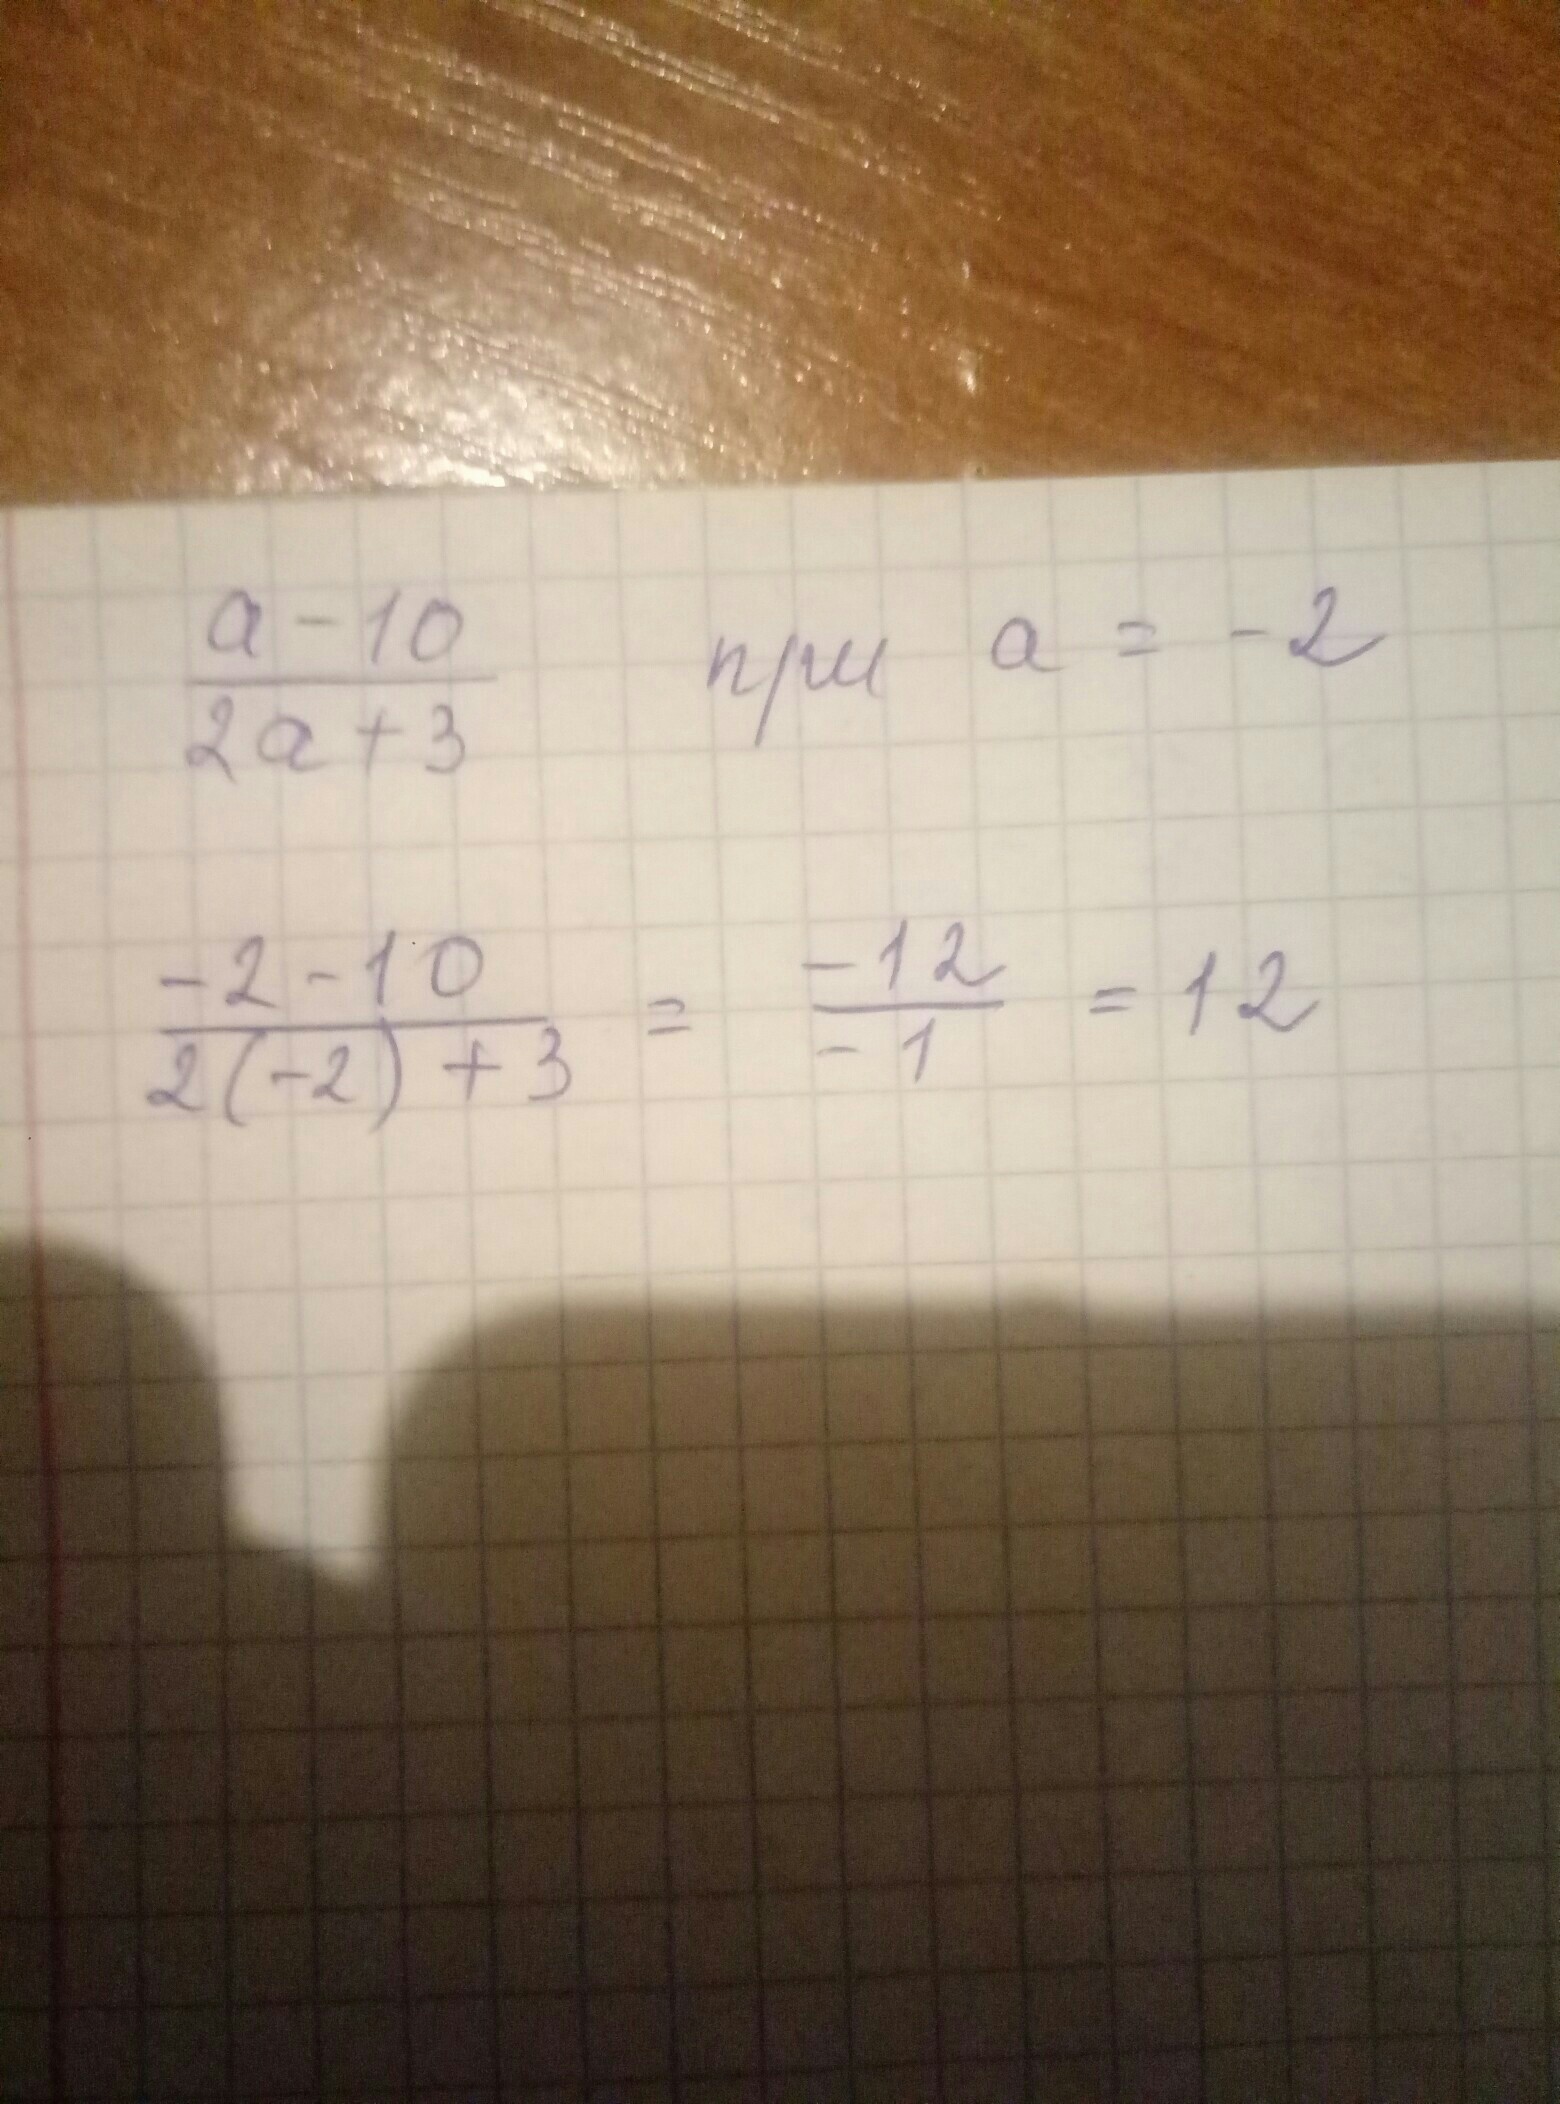 a - 10 / 2a + 3 при a = -2
-2 - 10 / 2(-2) + 3 = -12 / -1 = 12